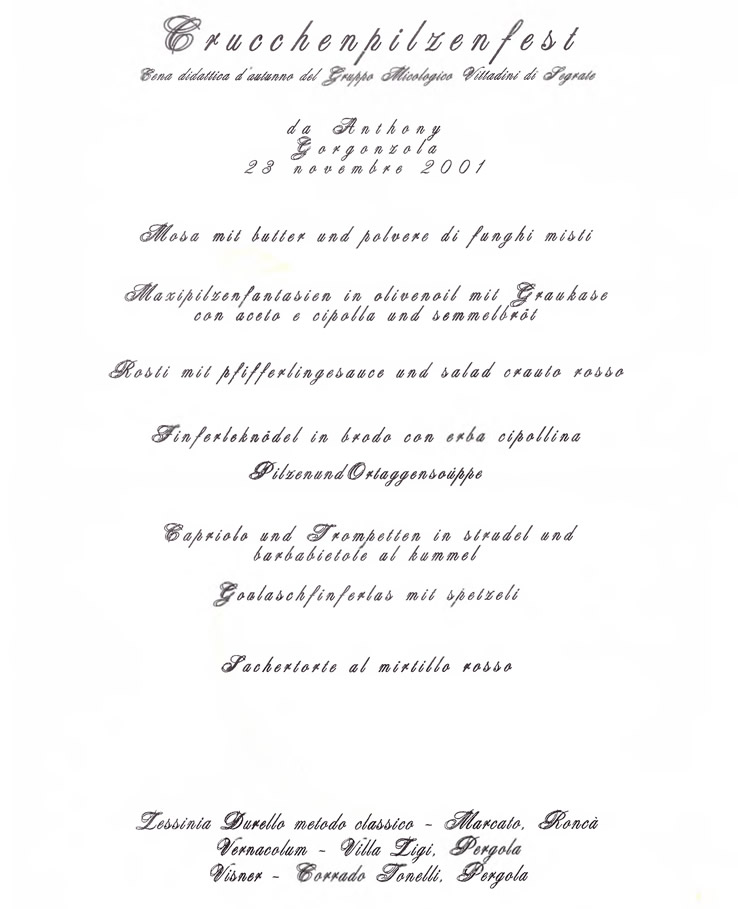 Crucchenpilzenfest
Cena didattica d'autunno del Gruppo Micologico Vittadini di Segrate
da Anthony
Gorgonzola
23 novembre 2001
Mosa mit butter und polvere di funghi misti
Maxipilzenfantasien in olivenoil mit Graukase
con aceto e cipolla und semmelbröt
Rosti mit pfifferlingesauce und salad crauto rosso
Finferleknödel in brodo con erba cipollina
PilzenundOrtaggensoüppe
Capriolo und Trompetten in strudel und
barbabietole al kummel
Goalaschfinferlas mit spetzeli
Sachertorte al mirtillo rosso
Lessinia Durello metodo classico - Marcato, Roncà
Vernacolum - Villa Ligi, Pergola
Visner - Corrado Tonelli, Pergola